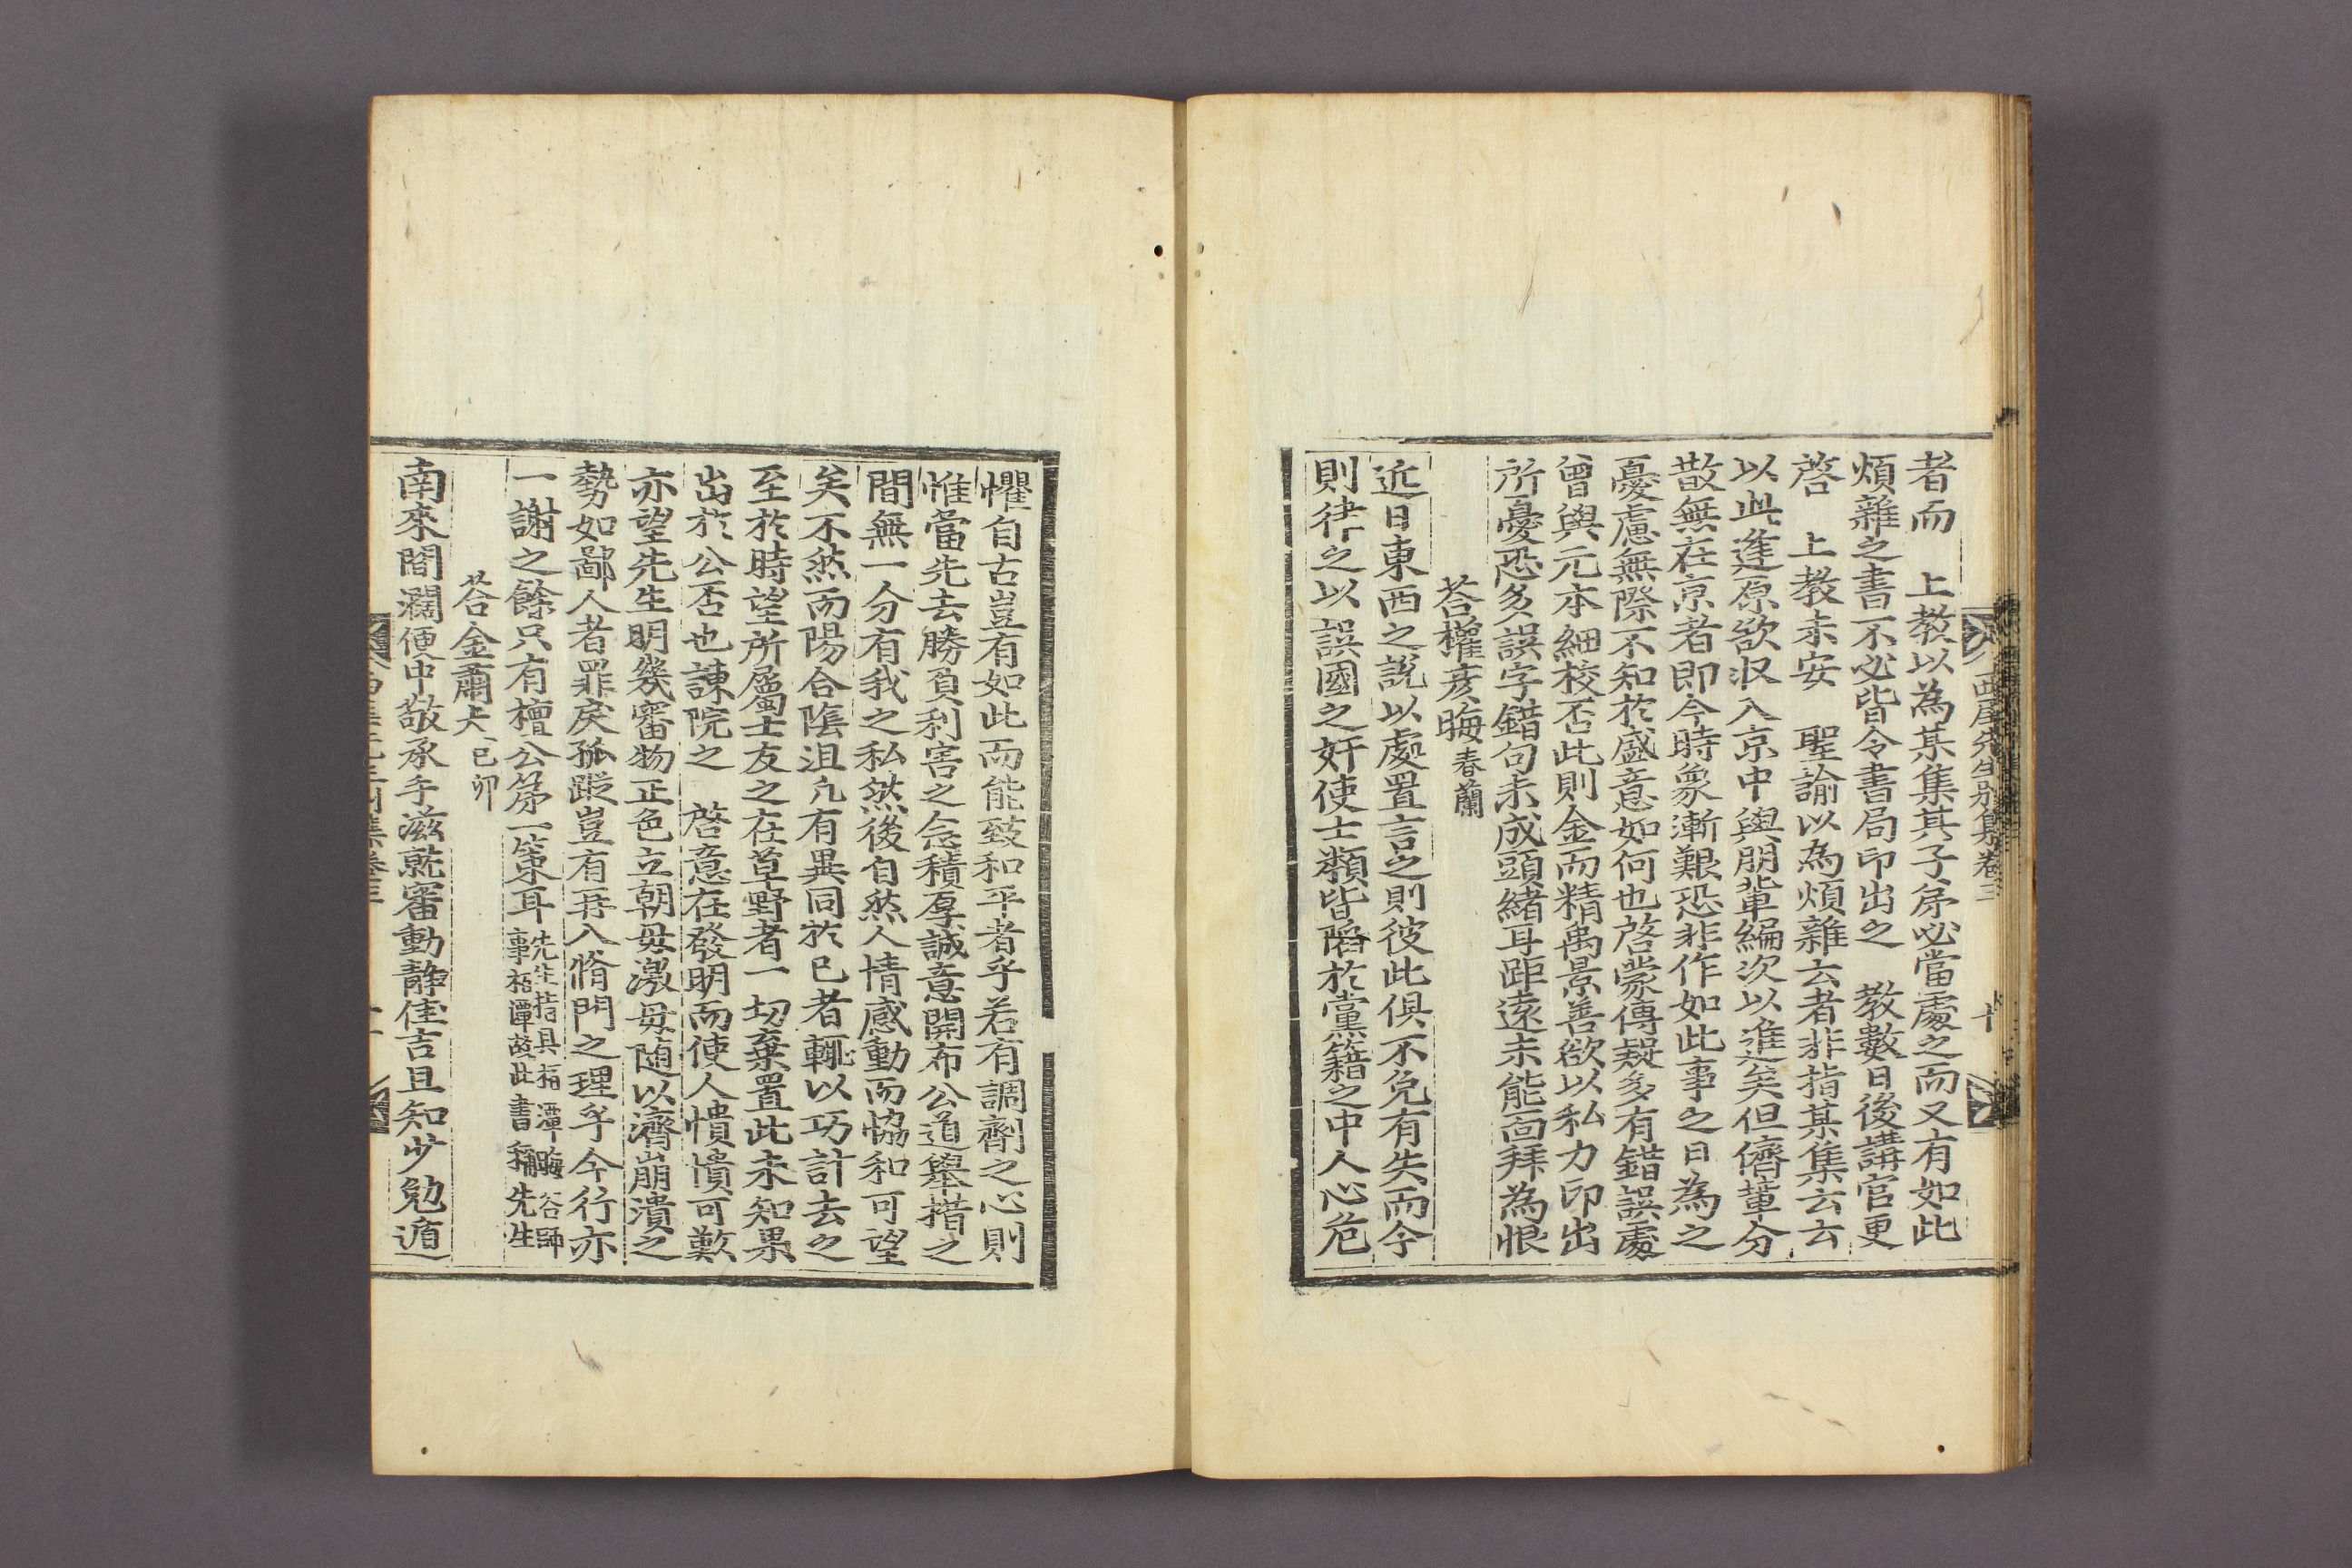 西厓先生別集卷三 十
者而 上教以為某集其子弟必當處之而又有如此
煩雜之書不必皆令書局印出之 教數日後講官更
啓 上教未安 聖諭以為煩雜云者非指某集云云
以此逢原欲収入京中與朋輩編次以進矣但儕輩分
散無在京者即今時象漸艱恐非作如此事之日為之
憂慮無際不知於盛意如何也啓蒙傳疑多有錯誤處
曾與元本細校否此則金而精禹景善欲以私力印出
所憂恐多誤字錯句未成頭緒耳距遠未能面拜為恨
荅權彦晦春蘭
近日東西之說以處置言之則彼此俱不免有失而今
則律之以誤國之奸使士類皆陷於黨籍之中人心危
懼自古豈有如此而能致和平者乎若有調劑之心則
惟當先去勝負利害之念積厚誠意開布公道舉措之
間無一分有我之私然後自然人情感動而恊和可望
矣不然而陽合陰沮凡有異同於已者輒以巧計去之
至於時望所屬士友之在草野者一切棄置此未知果
出於公否也諫院之 啓意在發明而使人憒憒可歎
亦望先生明幾審物正色立朝毋激毋随以濟崩潰之
勢如鄙人者罪戾孤蹤豈有再入脩門之理乎今行亦
一謝之餘只有檀公第一策耳先生指具栢潭晦谷師
事栢潭故此書稱先生
荅金肅夫己卯
南來間濶便中敬承手滋就審動静佳吉且知少勉遁